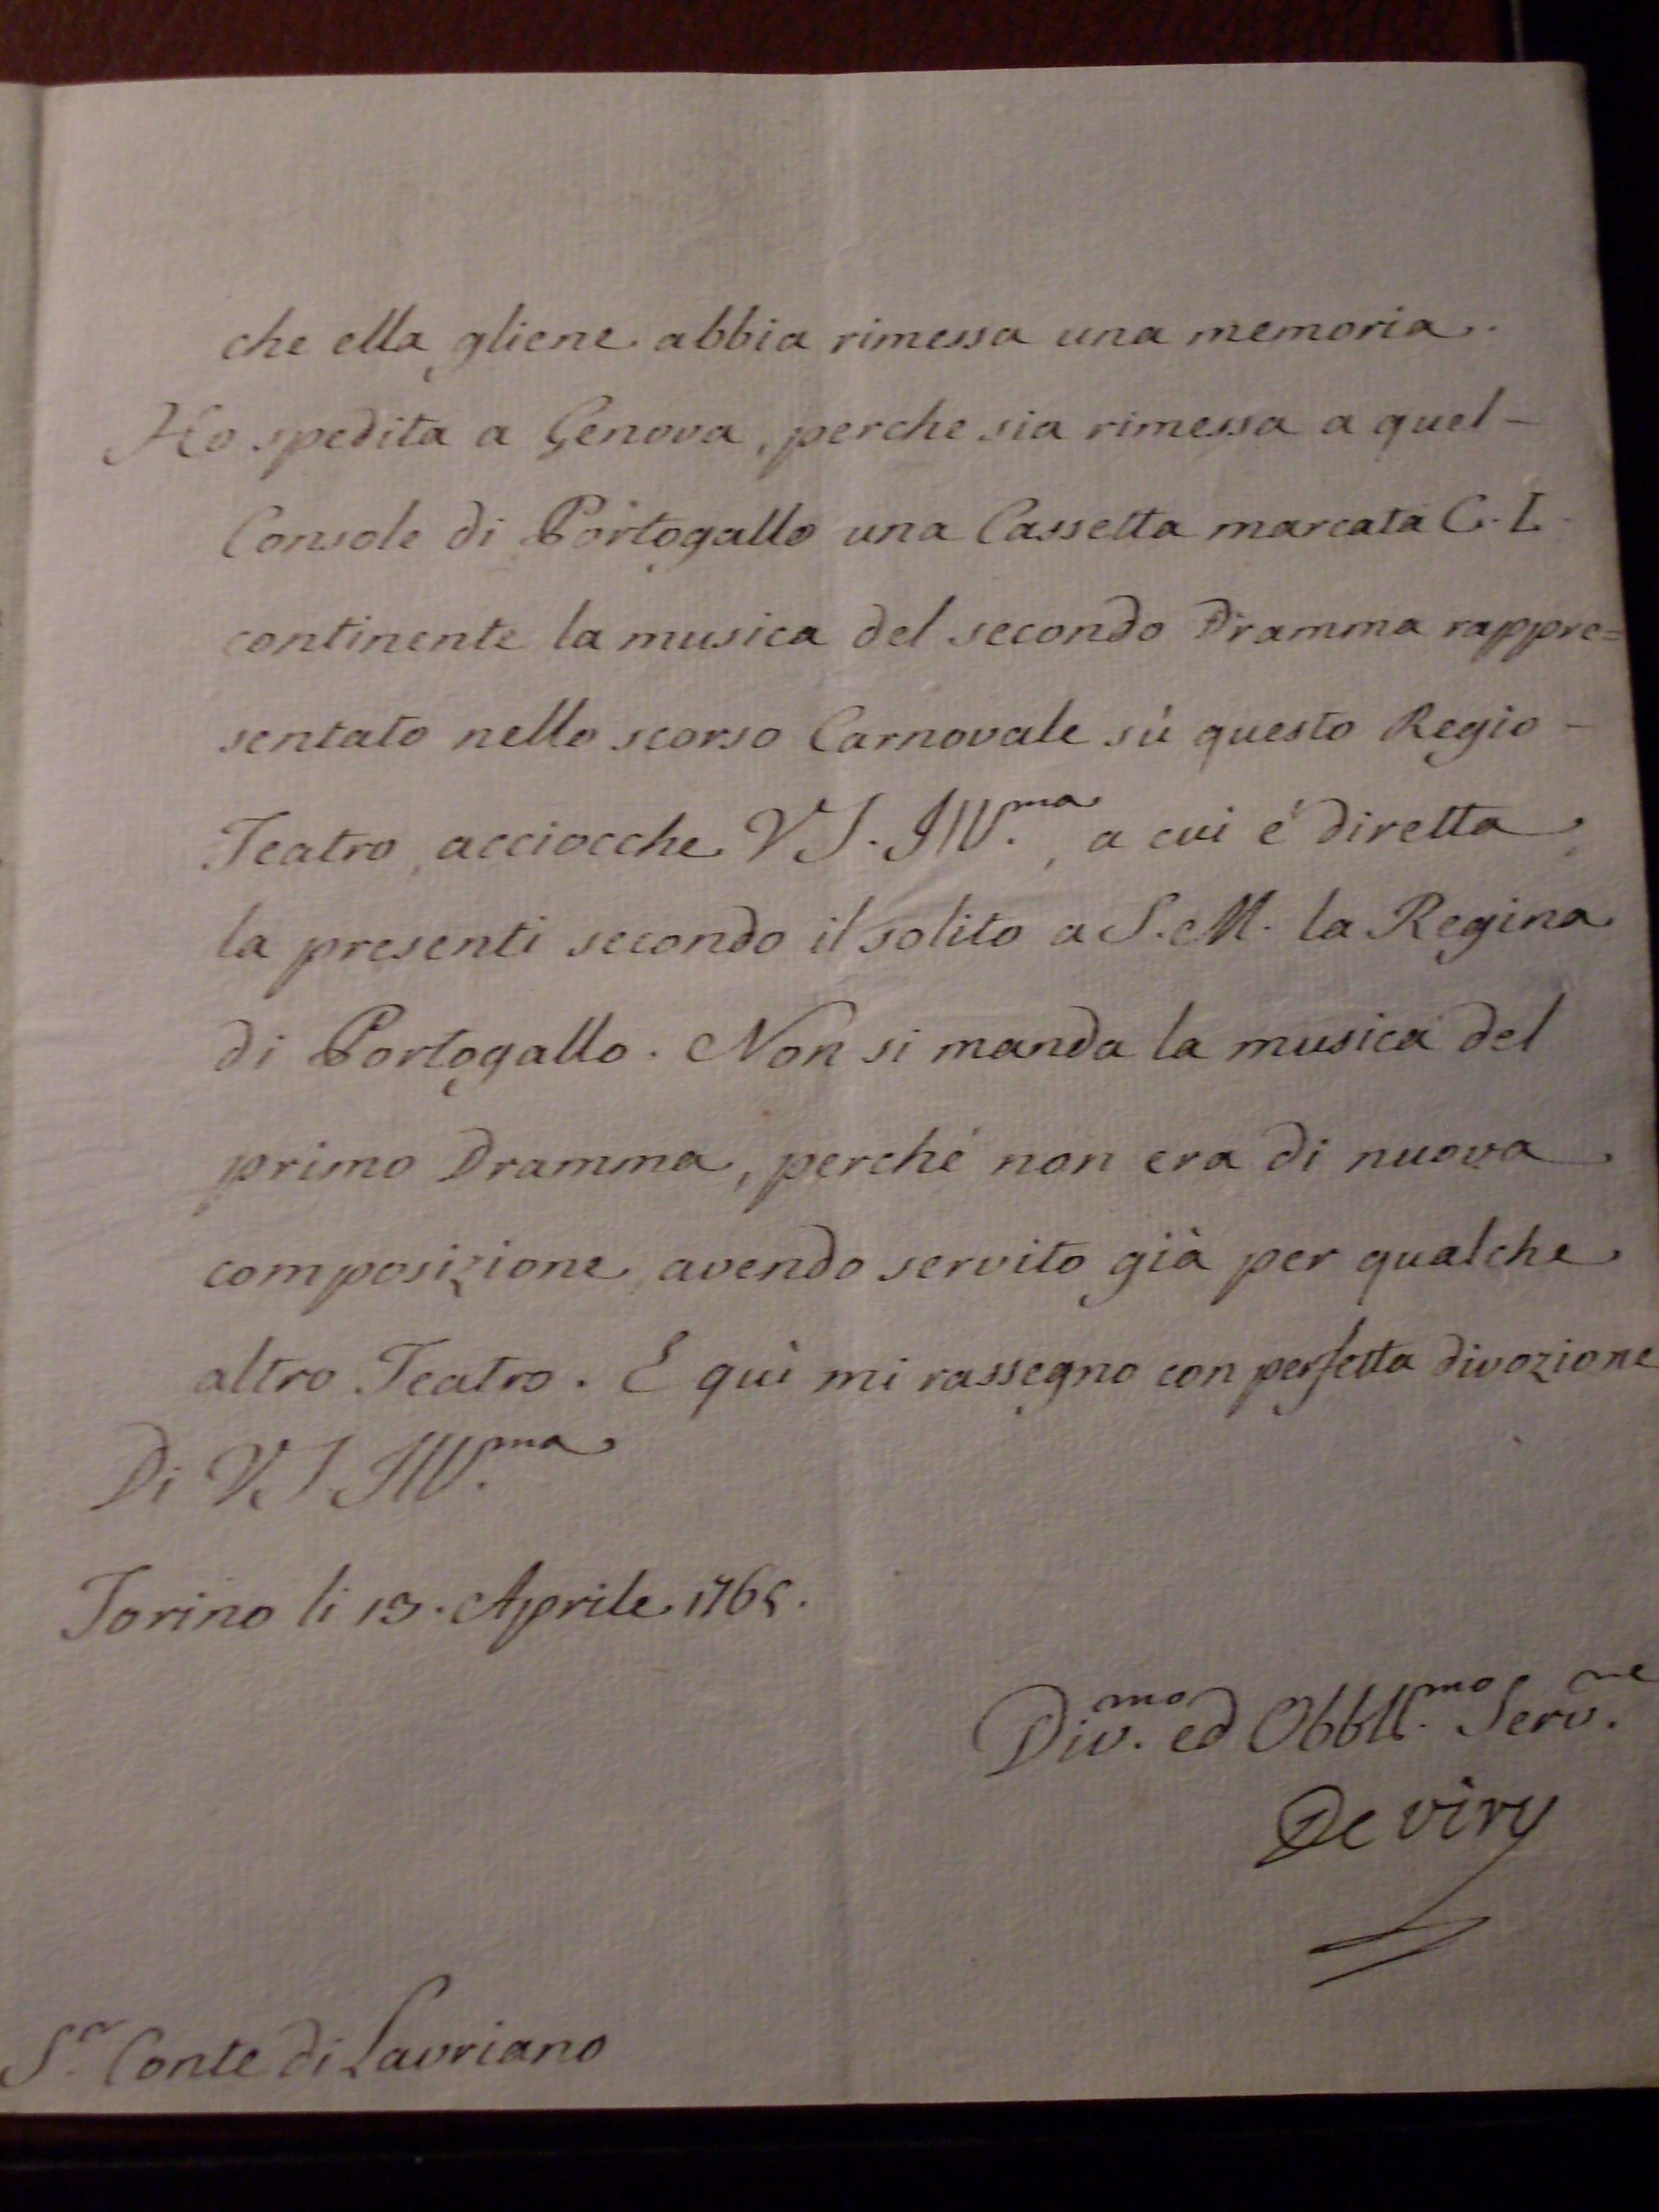 che ella gliene abbia rimessa una memoria.
Ho spedita a Genova, perche sia rimessa a quel-
Console di Portogallo una Cassetta marcata C. L.
continente la musica del secondo Dramma rappre=
sentato nello scorso Carnovale sù questo Regio -
Teatro, acciocche VS. Ill.ma, a cui é diretta,
la presenti secondo il solito a S. M. la Regina
di Portogallo. Non si manda la musica del
primo Dramma, perché non era di nuova
composizione, avendo servito già per qualche
altro Teatro. E quì mi rassegno con perfetta divozione
Di VS Ill.ma
Torino li 13. Aprile 1765.
Div.mo ed Obbl.mo Serv.re
De viry
S.r Conte di Lavriano